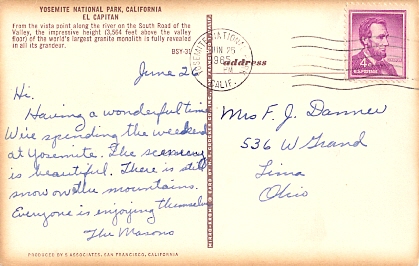 YOSEMITE NATIONAL PARK, CALIFORNIA
EL CAPITAN
From the vista point along the river on the South Road of the
Valley, the impressive height (3,564 feet above the valley
floor) of the world's largest granite monolith is fully revealed
in all its grandeur.
BSY-31
June 26
Hi.
Having a wonderful time
We're spending the weekend
at Yosemite. The scenery
is beautiful. There is still
snow on the mountains.
Everyone is enjoying themselves
The Masons
PRODUCED BY ASSOCIATES, SAN FRANCISCO, CALIFORNIA
YOSEMITE NATIONAL
JUN 26
PM
CALIF.
address
4¢
U.S. POSTAGE
Mrs F. J. Danner
536 W Grand
Lima
Ohio